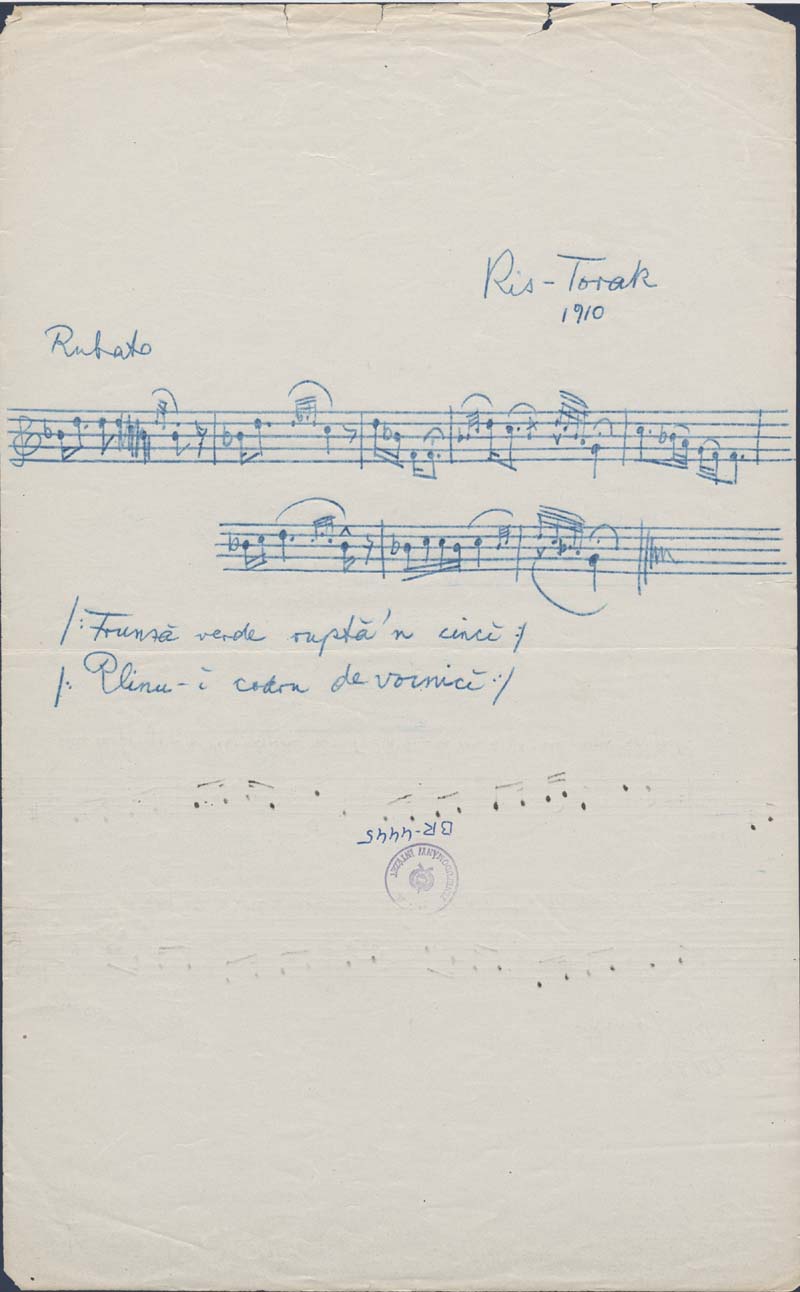 Kis-Torak
1910
Rubato
/: Frunză verde ruptă'n cinci :/
/: Plinu-i codru de voinici :/
BR-4445